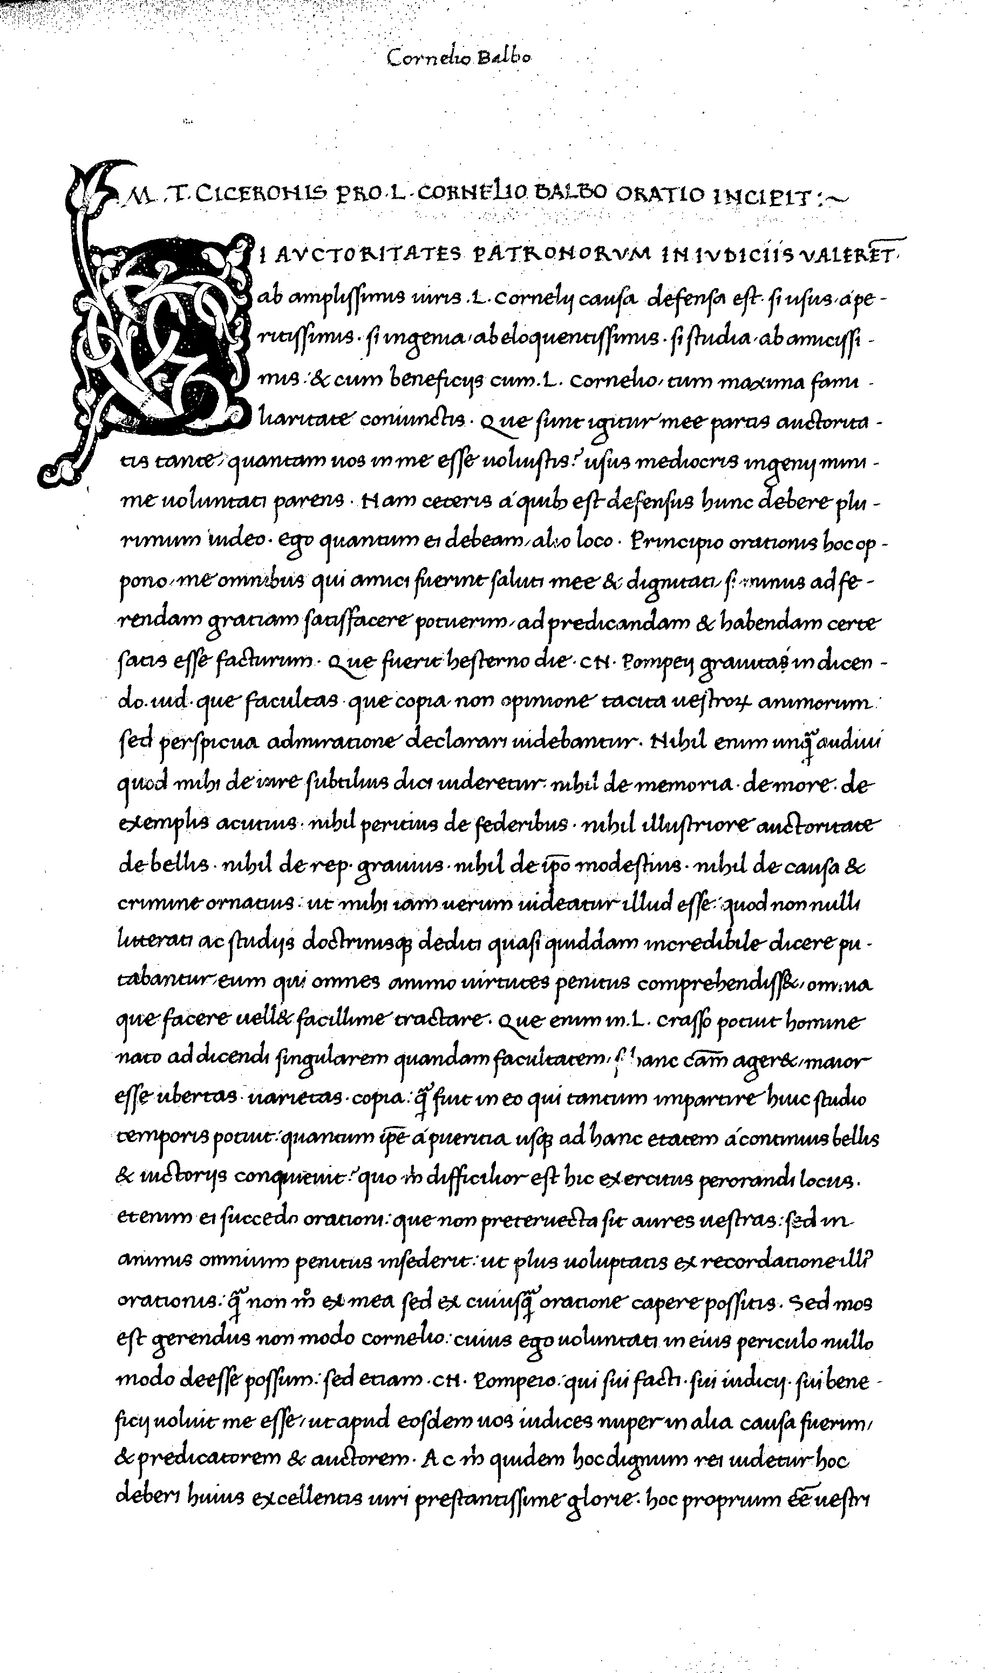 Cornelio Balbo
M. T. CICERONIS PRO. L. CORNELIO BALBO ORATIO INCIPIT:~
SI AVCTORITATES PATRONORVM IN IVDICIIS VALERET̅.
ab amplissimis uiris .L. Cornelij causa defensa est. si usus, a pe-
ritissimis. si ingenia, ab eloquentissimis. si studia, ab amicissi-
mis: & cum beneficijs cum .L. Cornelio, tum maxima fami-
liaritate coniunctis. Que sunt igitur mee partis auctorita-
tis tante, quantam uos in me esse uoluistis? usus mediocris ingenij mini-
me uoluntati parens. Nam ceteris a quibꝫ est defensus hunc debere plu-
rimum uideo. ego quantum ei debeam, alio loco. Principio orationis hoc op-
pono, me omnibus qui amici fuerint saluti mee & dignitati, si minus ad fe-
rendam gratiam satisfacere potuerim, ad predicandam & habendam certe
satis esse facturum. Que fuerit hesterno die .CN. Pompeij grauitas in dicen-
do. iud. que facultas. que copia. non opinione tacita uestroꝝ animorum.
sed perspicua admiratione declarari uidebantur. Nihil enim unq̃ audiui
quod mihi de iure subtilius dici uideretur. nihil de memoria. de more. de
exemplis acutius. nihil peritius de federibus. nihil illustriore auctoritate
de bellis. nihil de rep. grauius. nihil de ip̅o modestius. nihil de causa &
crimine ornatius: ut mihi iam uerum uideatur illud esse: quod non nulli
litterati ac studijs doctrinisqꝫ dediti quasi quiddam incredibile dicere pu-
tabantur, eum qui omnes animo uirtutes penitus comprehendiss&, omnia
que facere uell& facillime tractare. Que enim in .L. Crasso potuit homine
nato ad dicendi singularem quandam facultatem, si hanc cam̅ ager&, maior
esse ubertas. uarietas. copia: q̃ fuit in eo qui tantum impartire huic studio
temporis potuit: quantum ip̅e a pueritia usqꝫ ad hanc etatem a continuis bellis
& uictorijs conquieuit? quo m̊ difficilior est hic exercitus perorandi locus.
etenim ei succedo orationi: que non preteruecta sit aures uestras: sed in
animis omnium penitus insederit: ut plus uoluptatis ex recordatione illiꝰ
orationis: q̃ non m̊ ex mea sed ex cuiusq̃ oratione capere possitis. Sed mos
est gerendus non modo cornelio: cuius ego uoluntati in eius periculo nullo
modo deesse possum: sed etiam .CN. Pompeio: qui sui facti. sui iudicij. sui bene-
ficij uoluit me esse, ut apud eosdem uos iudices nuper in alia causa fuerim,
& predicatorem & auctorem. Ac m̊ quidem hoc dignum rei uidetur hoc
deberi huius excellentis uiri prestantissime glorie. hoc proprium ee̅ uestri